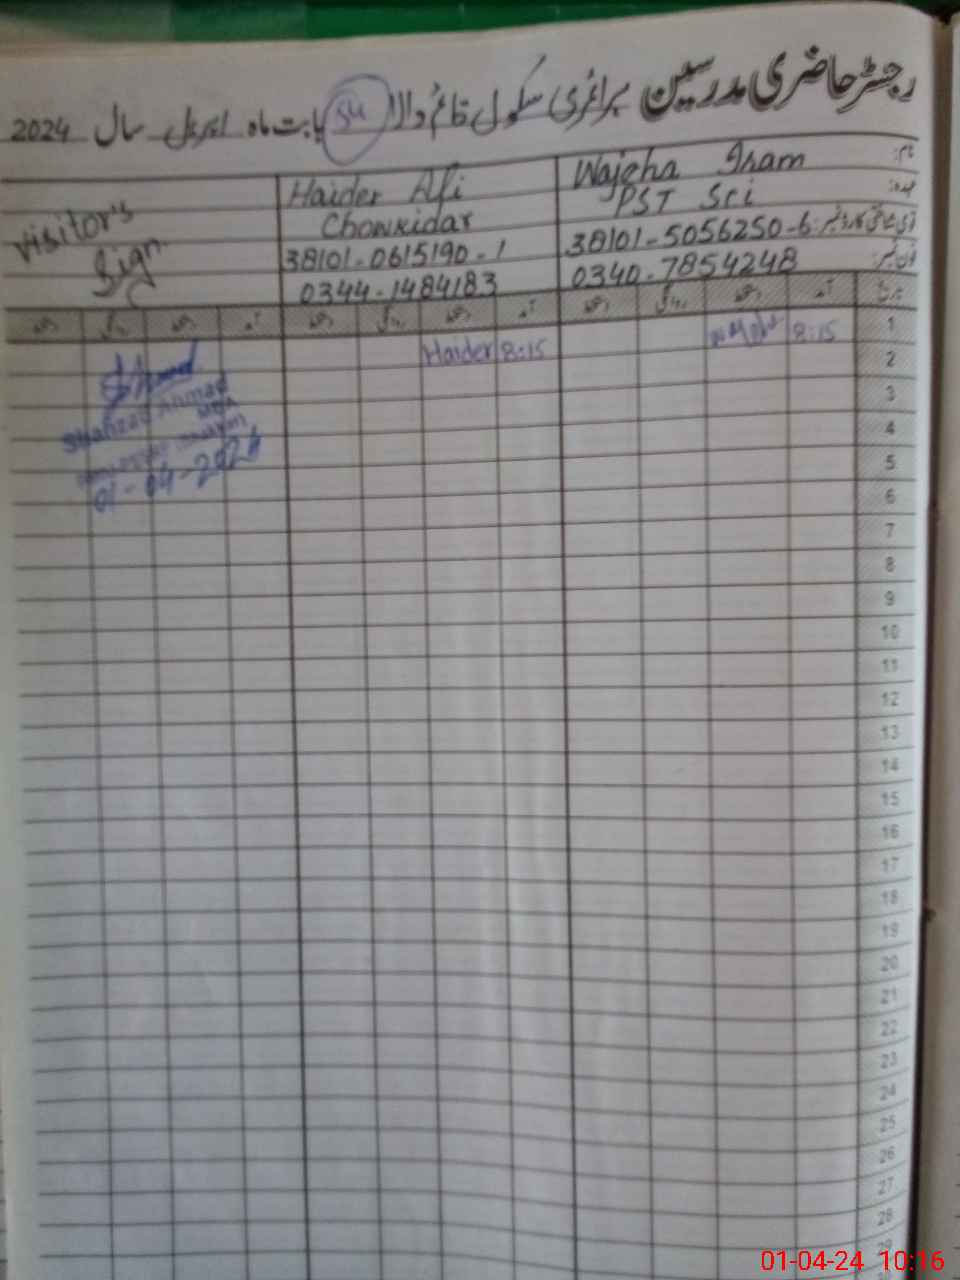 رجسٹر حاضری مدرسین پرائمری سکول قائم والا 54 بابت ماہ اپریل سال 2024
نام:
Wajeha Iram
Haider Ali
Visitor's
Sign
عہدہ:
PST Sci
Chowkidar
قومی شناختی کارڈ نمبر:
38101-5056250-6
38101-0615190-1
فون نمبر:
0340-7854248
0344-1484183
تاریخ آمد دستخط روانگی دستخط آمد دستخط روانگی دستخط آمد دستخط روانگی دستخط
1 8:15
Haider 8:15
2
3
4
5
6
7
8
9
10
11
12
13
14
15
16
17
18
19
20
21
22
23
24
25
26
27
28
29
Shahzad Ahmad
MEA
01-04-2024
01-04-24 10:16